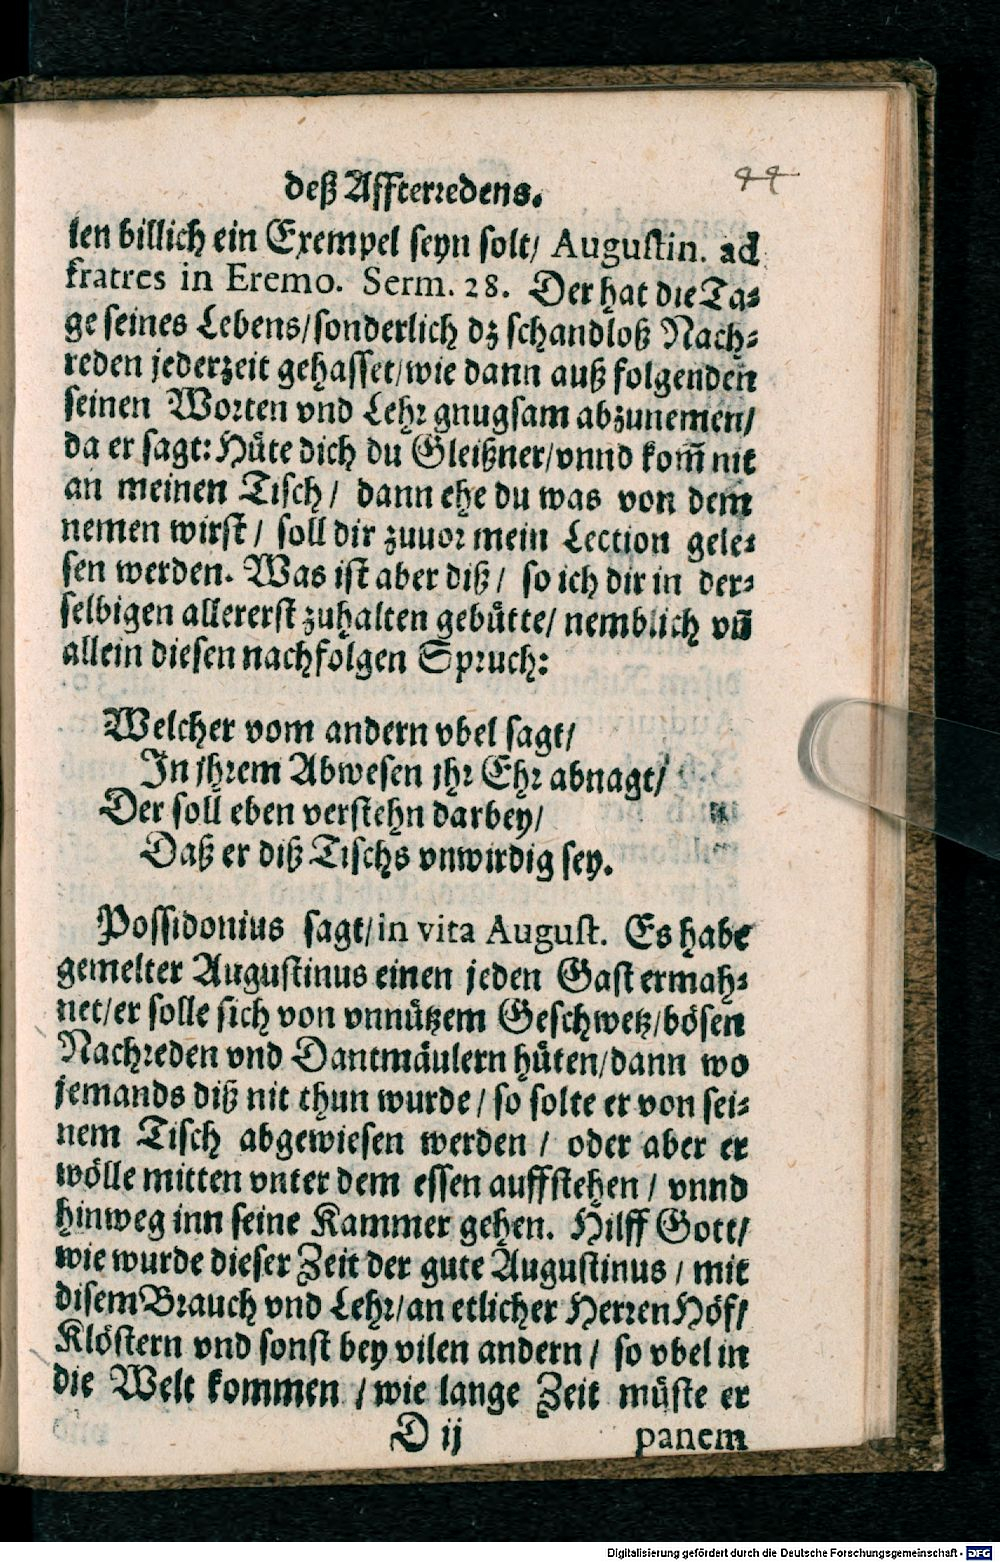 deß Affterredens.
44
len billich ein Exempel seyn solt/ Augustin. ad
fratres in Eremo. Serm. 28. Der hat die Ta⸗
ge seines Lebens/sonderlich dz schandloß Nach⸗
reden jederzeit gehasset/wie dann auß folgenden
seinen Worten vnd Lehr gnugsam abzunemen/
da er sagt: Hüte dich du Gleißner/vnnd kom̃ nit
an meinen Tisch/ dann ehe du was von dem
nemen wirst/ soll dir zuuor mein Lection gele⸗
sen werden. Was ist aber diß/ so ich dir in der⸗
selbigen allererst zuhalten gebütte/ nemblich vñ
allein diesen nachfolgen Spruch:
Welcher vom andern vbel sagt/
In jhrem Abwesen jhr Ehr abnagt/
Der soll eben verstehn darbey/
Daß er diß Tischs vnwirdig sey.
Possidonius sagt/in vita August. Es habe
gemelter Augustinus einen jeden Gast ermah⸗
net/er solle sich von vnnützem Geschwetz/bösen
Nachreden vnd Dantmäulern hüten/dann wo
jemands diß nit thun wurde/ so solte er von sei⸗
nem Tisch abgewiesen werden/ oder aber er
wölle mitten vnter dem essen auffstehen/ vnnd
hinweg inn seine Kammer gehen. Hilff Gott/
wie wurde dieser Zeit der gute Augustinus/ mit
disem Brauch vnd Lehr/an etlicher Herren Höf/
Klöstern vnd sonst bey vilen andern/ so vbel in
die Welt kommen/wie lange Zeit müste er
D ij
panem
Digitalisierung gefördert durch die Deutsche Forschungsgemeinschaft - DFG